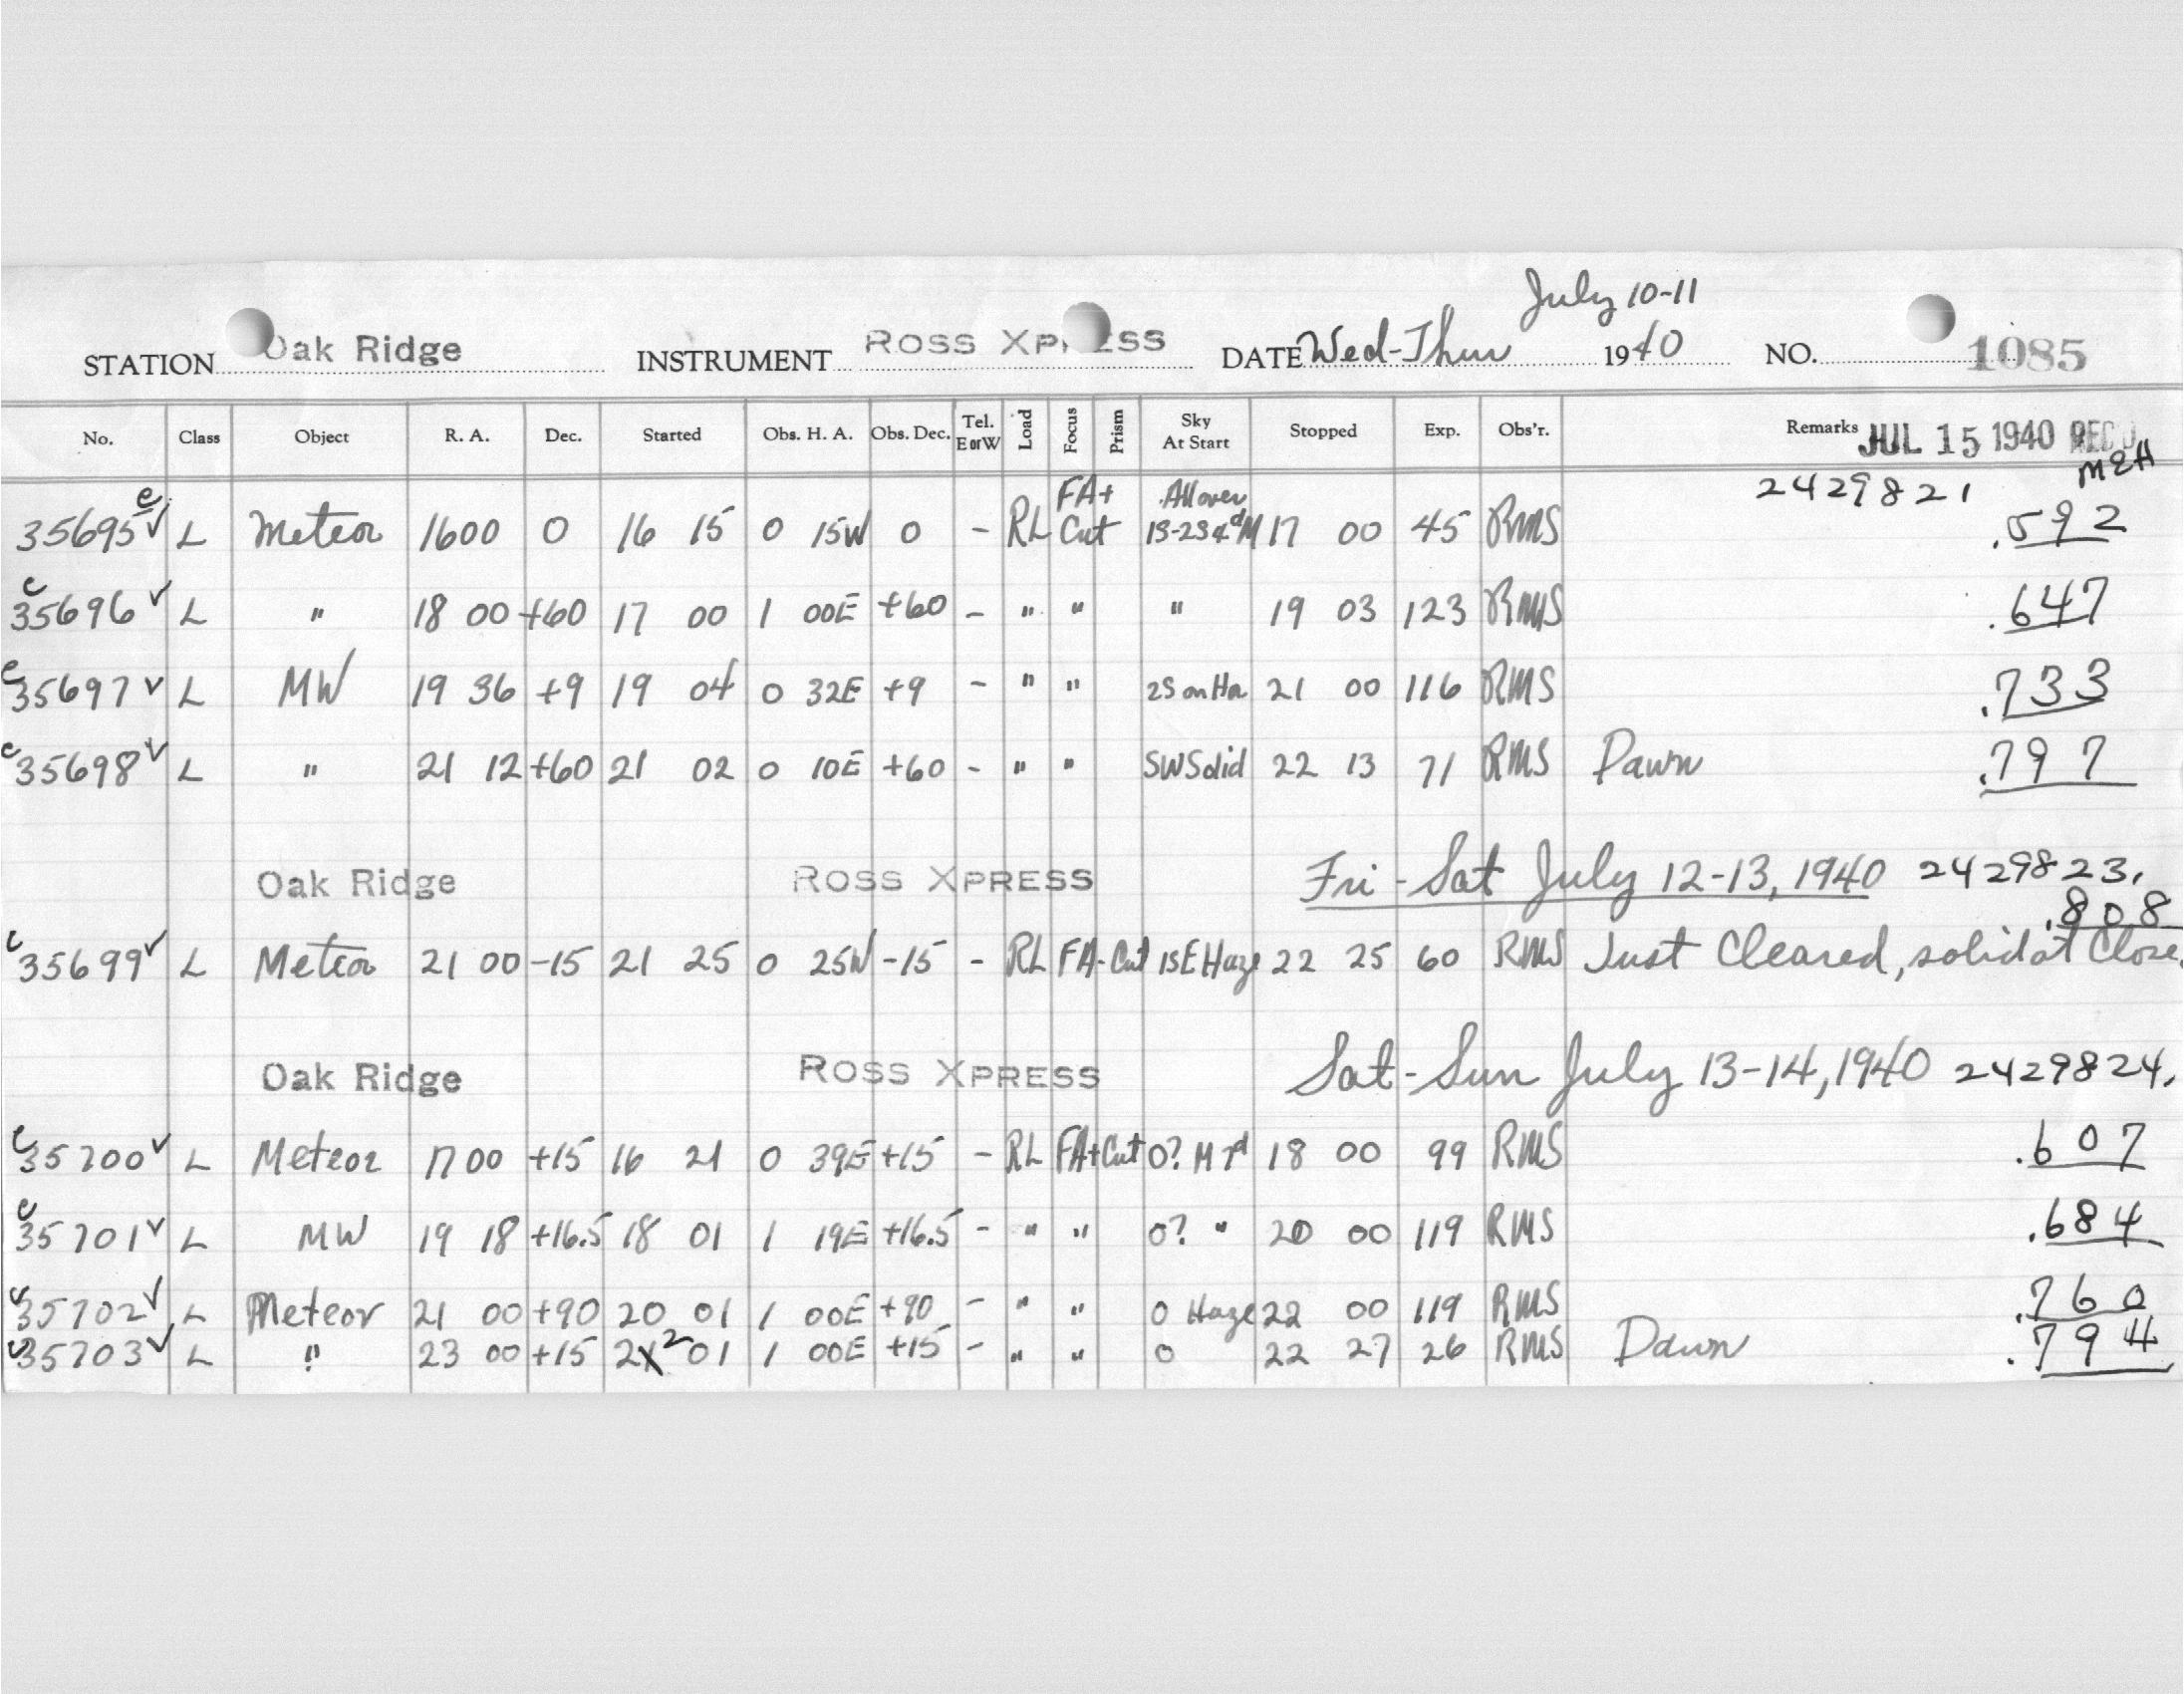 July 10-11
STATION Oak Ridge INSTRUMENT ROSS XPRESS DATE Wed-Thur 1940 NO. 1085
No. Class Object R. A. Dec. Started Obs. H. A. Obs. Dec. Tel. E or W Load Focus Prism Sky At Start Stopped Exp. Obs'r. Remarks JUL 15 1940 REC'D
2429821 MEH
35695 e ✓ L Meteor 1600 0 16 15 0 15W 0 - RL FA+ Cut All over 1S-2S 4d M 17 00 45 RMS .592
c 35696 ✓ L " 18 00 +60 17 00 1 00E +60 - " " " 19 03 123 RMS .647
c 35697 ✓ L MW 19 36 +9 19 04 0 32E +9 - " " 2S on Hor 21 00 116 RMS .733
c 35698 ✓ L " 21 12 +60 21 02 0 10E +60 - " " SW Solid 22 13 71 RMS Dawn .797
Oak Ridge ROSS XPRESS Fri-Sat July 12-13, 1940 2429823.
.808
c 35699 ✓ L Meteor 21 00 -15 21 25 0 25W -15 - RL FA-Cut 1S E Haze 22 25 60 RMS Just Cleared, solid at Close.
Oak Ridge ROSS XPRESS Sat-Sun July 13-14, 1940 2429824.
c 35700 ✓ L Meteor 17 00 +15 16 21 0 39E +15 - RL FA+Cut 0? M 7d 18 00 99 RMS .607
c 35701 ✓ L MW 19 18 +16.5 18 01 1 19E +16.5 - " " 0? " 20 00 119 RMS .684
c 35702 ✓ L Meteor 21 00 +90 20 01 1 00E +90 - " " 0 Haze 22 00 119 RMS .760
c 35703 ✓ L " 23 00 +15 22 01 1 00E +15 - " " 0 22 27 26 RMS Dawn .794